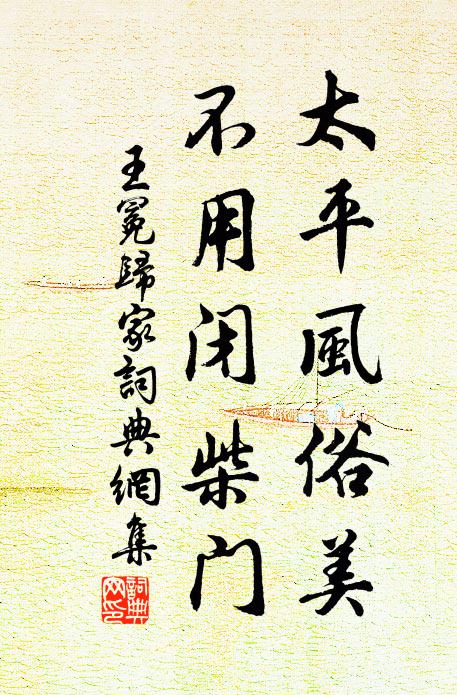 太平風俗美
不用闭柴门
王冕歸家詞典網集
詞典